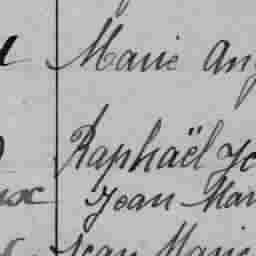 Marie Ang
Raphaël Jo
Jean Mar
Jean Marie